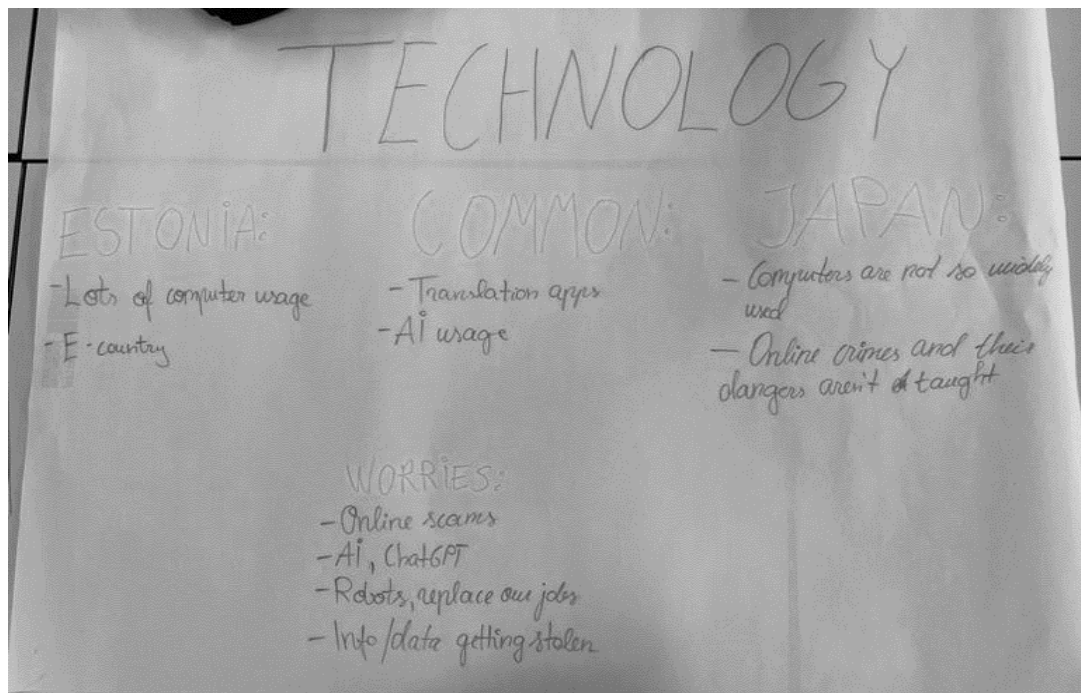 TECHNOLOGY
ESTONIA:
- Lots of computer usage
- E-country
COMMON:
- Translation apps
- Ai usage
JAPAN:
- Computers are not so widely
used
- Online crimes and their
dangers aren't taught
WORRIES:
- Online scams
- Ai, ChatGPT
- Robots, replace our jobs
- Info/data getting stolen